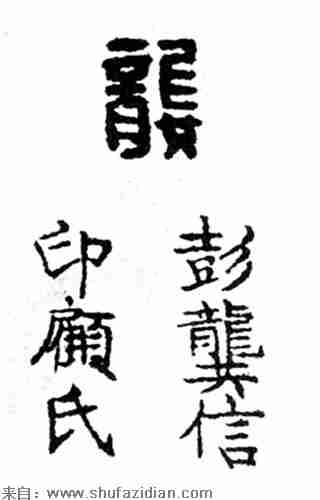 龔
彭龔信
印顧氏
来自：www.shufazidian.com